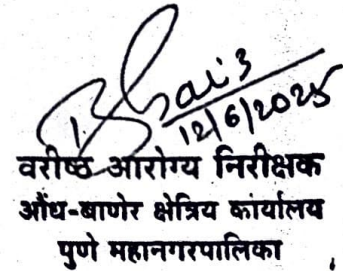 12/6/2025
वरीष्ठ आरोग्य निरीक्षक
औंध-बाणेर क्षेत्रिय कार्यालय
पुणे महानगरपालिका